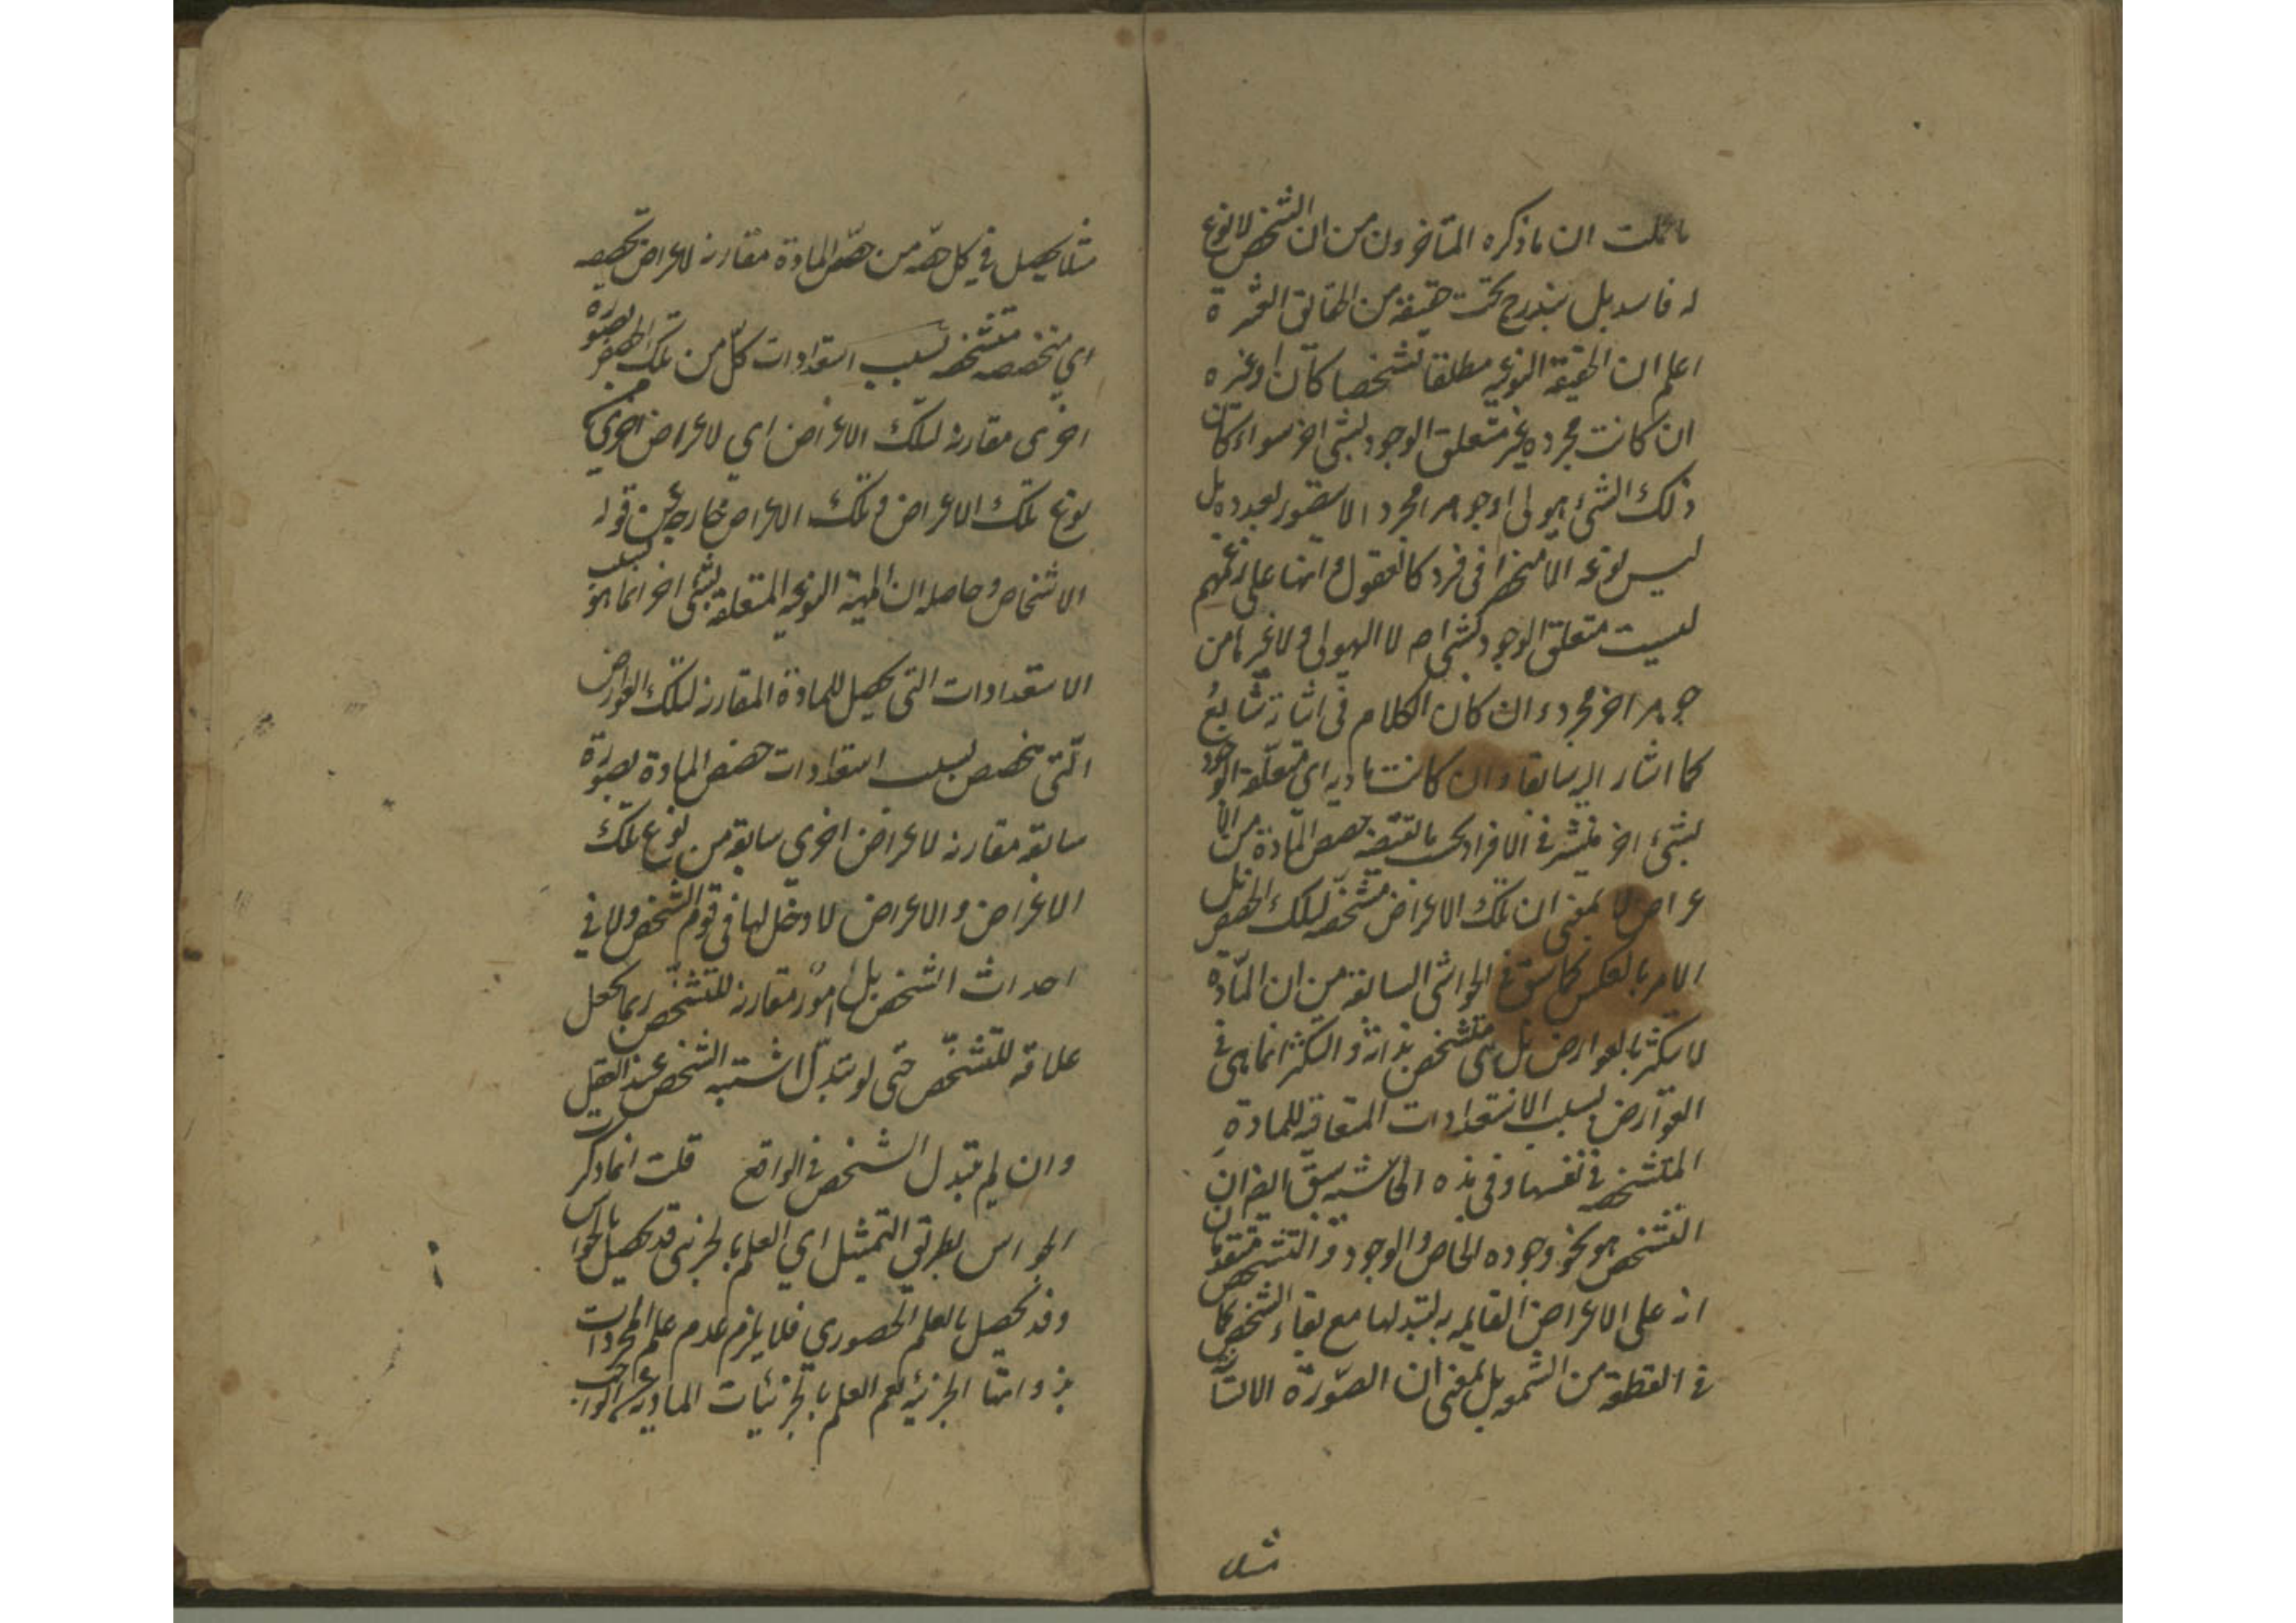 ما علمت ان ما ذكره المتأخرون من ان الشخص لا نوع
له فاسد بل يندرج تحت حقيقة من الحقائق العشرة
اعلم ان الحقيقة النوعيه مطلقا شخصا كان او غيره
ان كانت مجرده غير متعلق الوجود بشئ اخر سواء كان
ذلك الشئ هيولى او جوهرا مجردا لا يتصور تعدده بل
ليس نوعه الا منحصرا فى فرد كالعقول فانها على زعمهم
ليست متعلق الوجود بشئ اصلا لا الهيولى ولا غيرها من
جوهر اخر مجرد وان كان الكلام فى اثباته شايع
كما اشار اليه سابقا وان كانت ماديه اي متعلقة الوجود
بشئ اخر فينتشر فى الافراد بحسب ما تقتضيه حصص المادة من الا
عراض لا بمعنى ان تلك الاعراض مشخصه لتلك الحصص بل
الامر بالعكس كما سبق فى الحواشى السابقة من ان المادة
لا يتكثر بالعوارض بل هى متشخص بذاته والتكثر انما هى فى
العوارض بسبب الاستعدادات المتعاقبه للمادة
المتشخصه فى نفسها وفى هذه الحاشيه سبق ايضا ان
التشخص هو نحو وجوده الخاص والوجود والتشخص متقدمان
انه على الاعراض القايمه به لتبدلها مع بقاء الشخص كما
فى القطعة من الشمعه بل بمعنى ان الصورة الانسا
مثلا
مثلا يحصل في كل حصه من حصص المادة مقارنه لاعراض تخصه
اي متخصصه متشخصه بسبب استعدادات كل من تلك الحصص بصورة
اخرى مقارنه لتلك الاعراض اي لاعراض اخرى من
نوع تلك الاعراض وتلك الاعراض خارجة عن قوام
الاشخاص وحاصله ان المهية النوعيه المتعلقه بشئ اخر انما هو بسبب
الاستعدادات التى يحصل للمادة المقارنه لتلك العوارض
التى تخصص بسبب استعدادات حصص المادة بصورة
سابقه مقارنه لاعراض اخرى سابقة من نوع تلك
الاعراض والاعراض لا دخل لها فى قوام الشخص ولا في
احداث الشخص بل امور مقارنه للتشخص ربما يجعل
علامة للتشخص حتى لو تبدل اشتبه الشخص عند العقل
وان لم يتبدل الشخص فى الواقع قلت انما ذكرت
الحواس بطريق التمثيل اي العلم بالجزئى قد يحصل بالحواس
وقد يحصل بالعلم الحضوري فلا يلزم عدم علم المجردات
بذواتها الجزئيه نعم العلم بالجزئيات الماديه الواجب